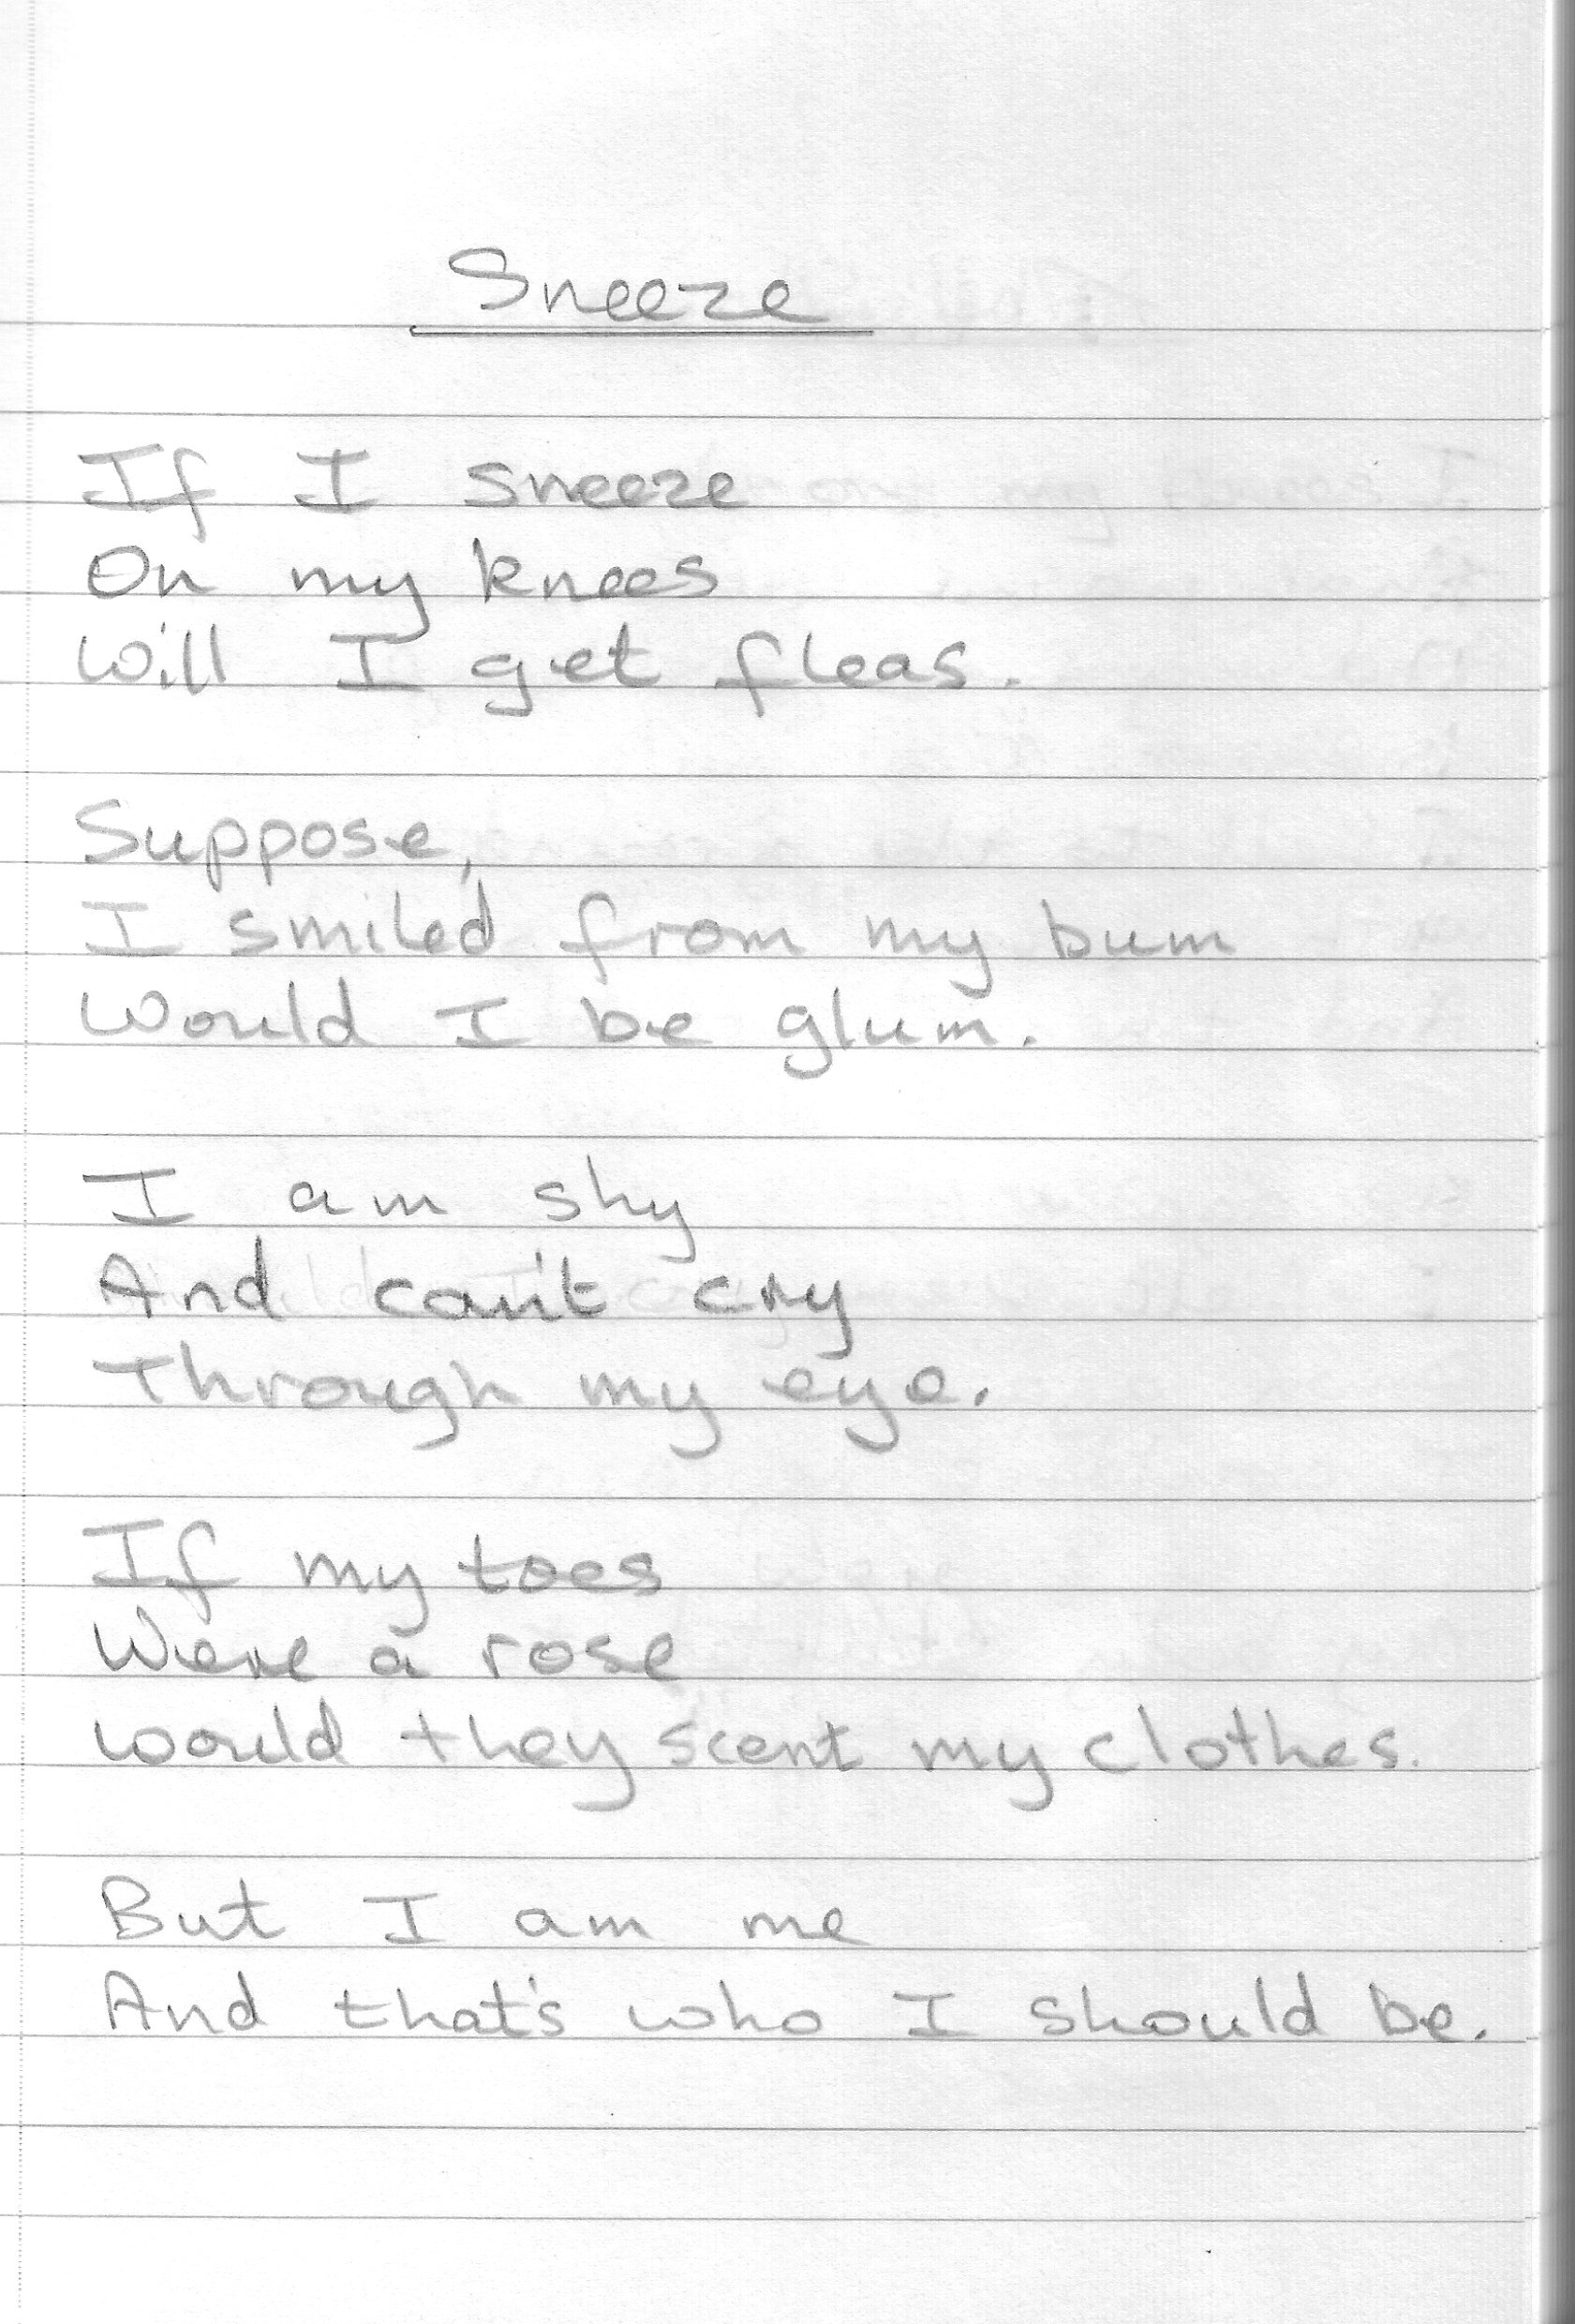 Sneeze
If I sneeze
On my knees
Will I get fleas.
Suppose,
I smiled from my bum
Would I be glum.
I am shy
And can't cry
Through my eye.
If my toes
Were a rose
Would they scent my clothes.
But I am me
And that's who I should be.